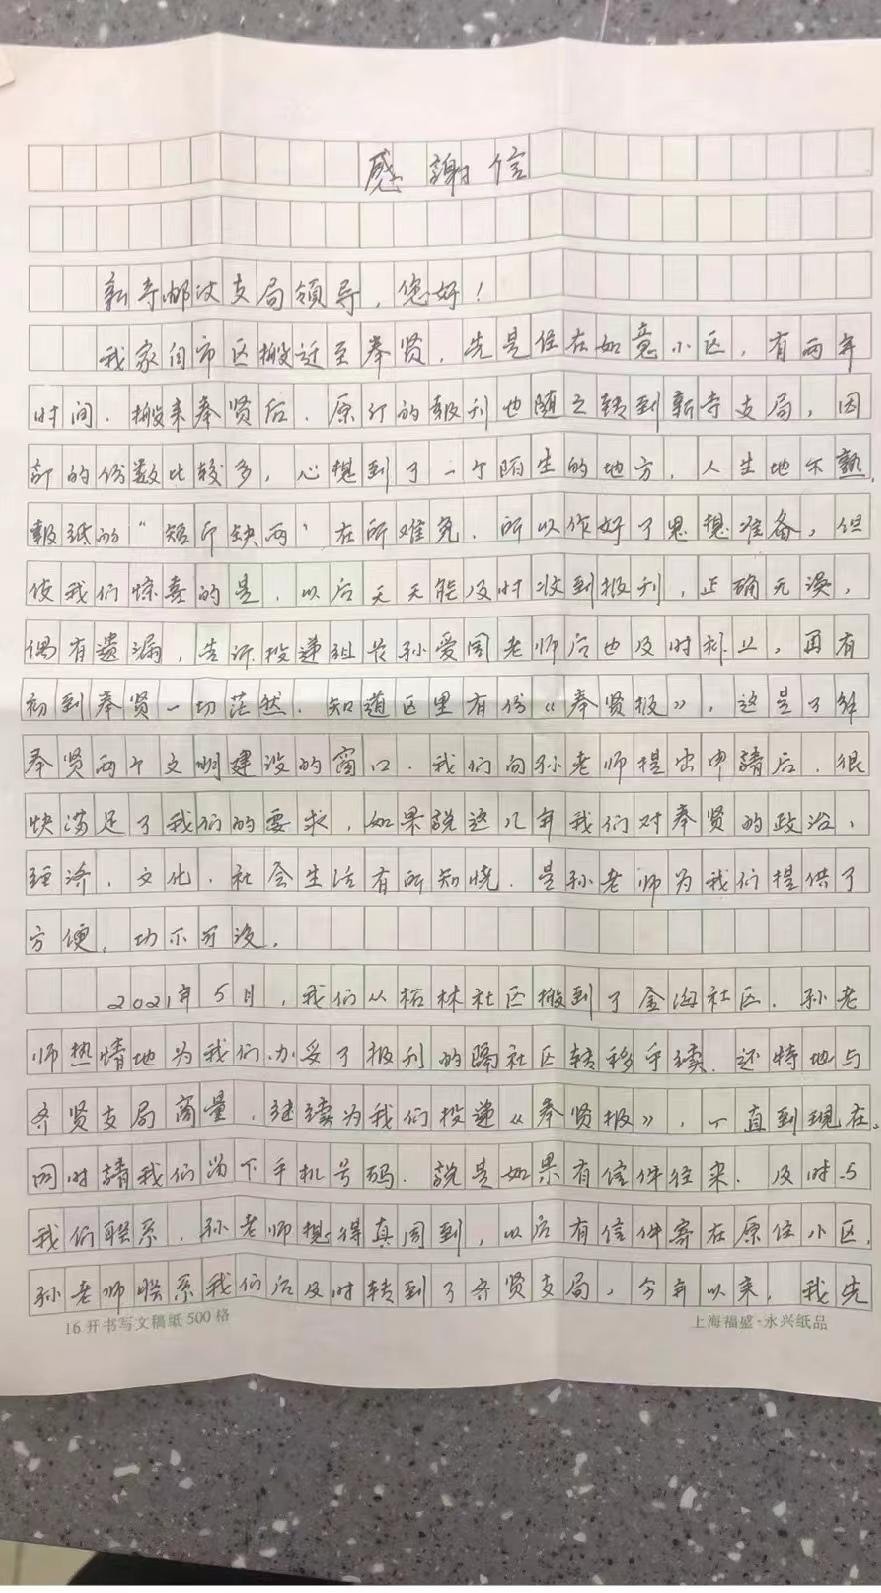 感謝信
新寺邮政支局领导，您好！
我家自市区搬迁至奉贤，先是住在如意小区，有两年
时间，搬来奉贤后，原订的報刊也随之转到新寺支局，因
訂的份数比较多，心想到了一个陌生的地方，人生地不熟，
報纸的“短斤缺两”在所难免，所以作好了思想准备，但
使我们惊喜的是，以后天天能及时收到报刊，正确无误，
偶有遗漏，告诉投递组长孙爱国老师后也及时补上，再有
初到奉贤一切茫然，知道区里有份《奉贤报》，这是了解
奉贤两个文明建设的窗口，我们向孙老师提出申請后，很
快满足了我们的要求，如果說这几年我们对奉贤的政治，
经济，文化，社会生活有所知晓，是孙老师为我们提供了
方便，功不可没，
2021年5月，我们从柘林社区搬到了金海社区，孙老
师热情地为我们办妥了报刊的隔社区转移手续，还特地与
齐贤支局商量，继续为我们投递《奉贤报》，一直到现在。
同时請我们留下手机号码，說是如果有信件往来，及时与
我们联系，孙老师想得真周到，以后有信件寄在原住小区，
孙老师联系我们后及时转到了齐贤支局，今年以来，我先
16开书写文稿紙500格
上海福盛·永兴纸品